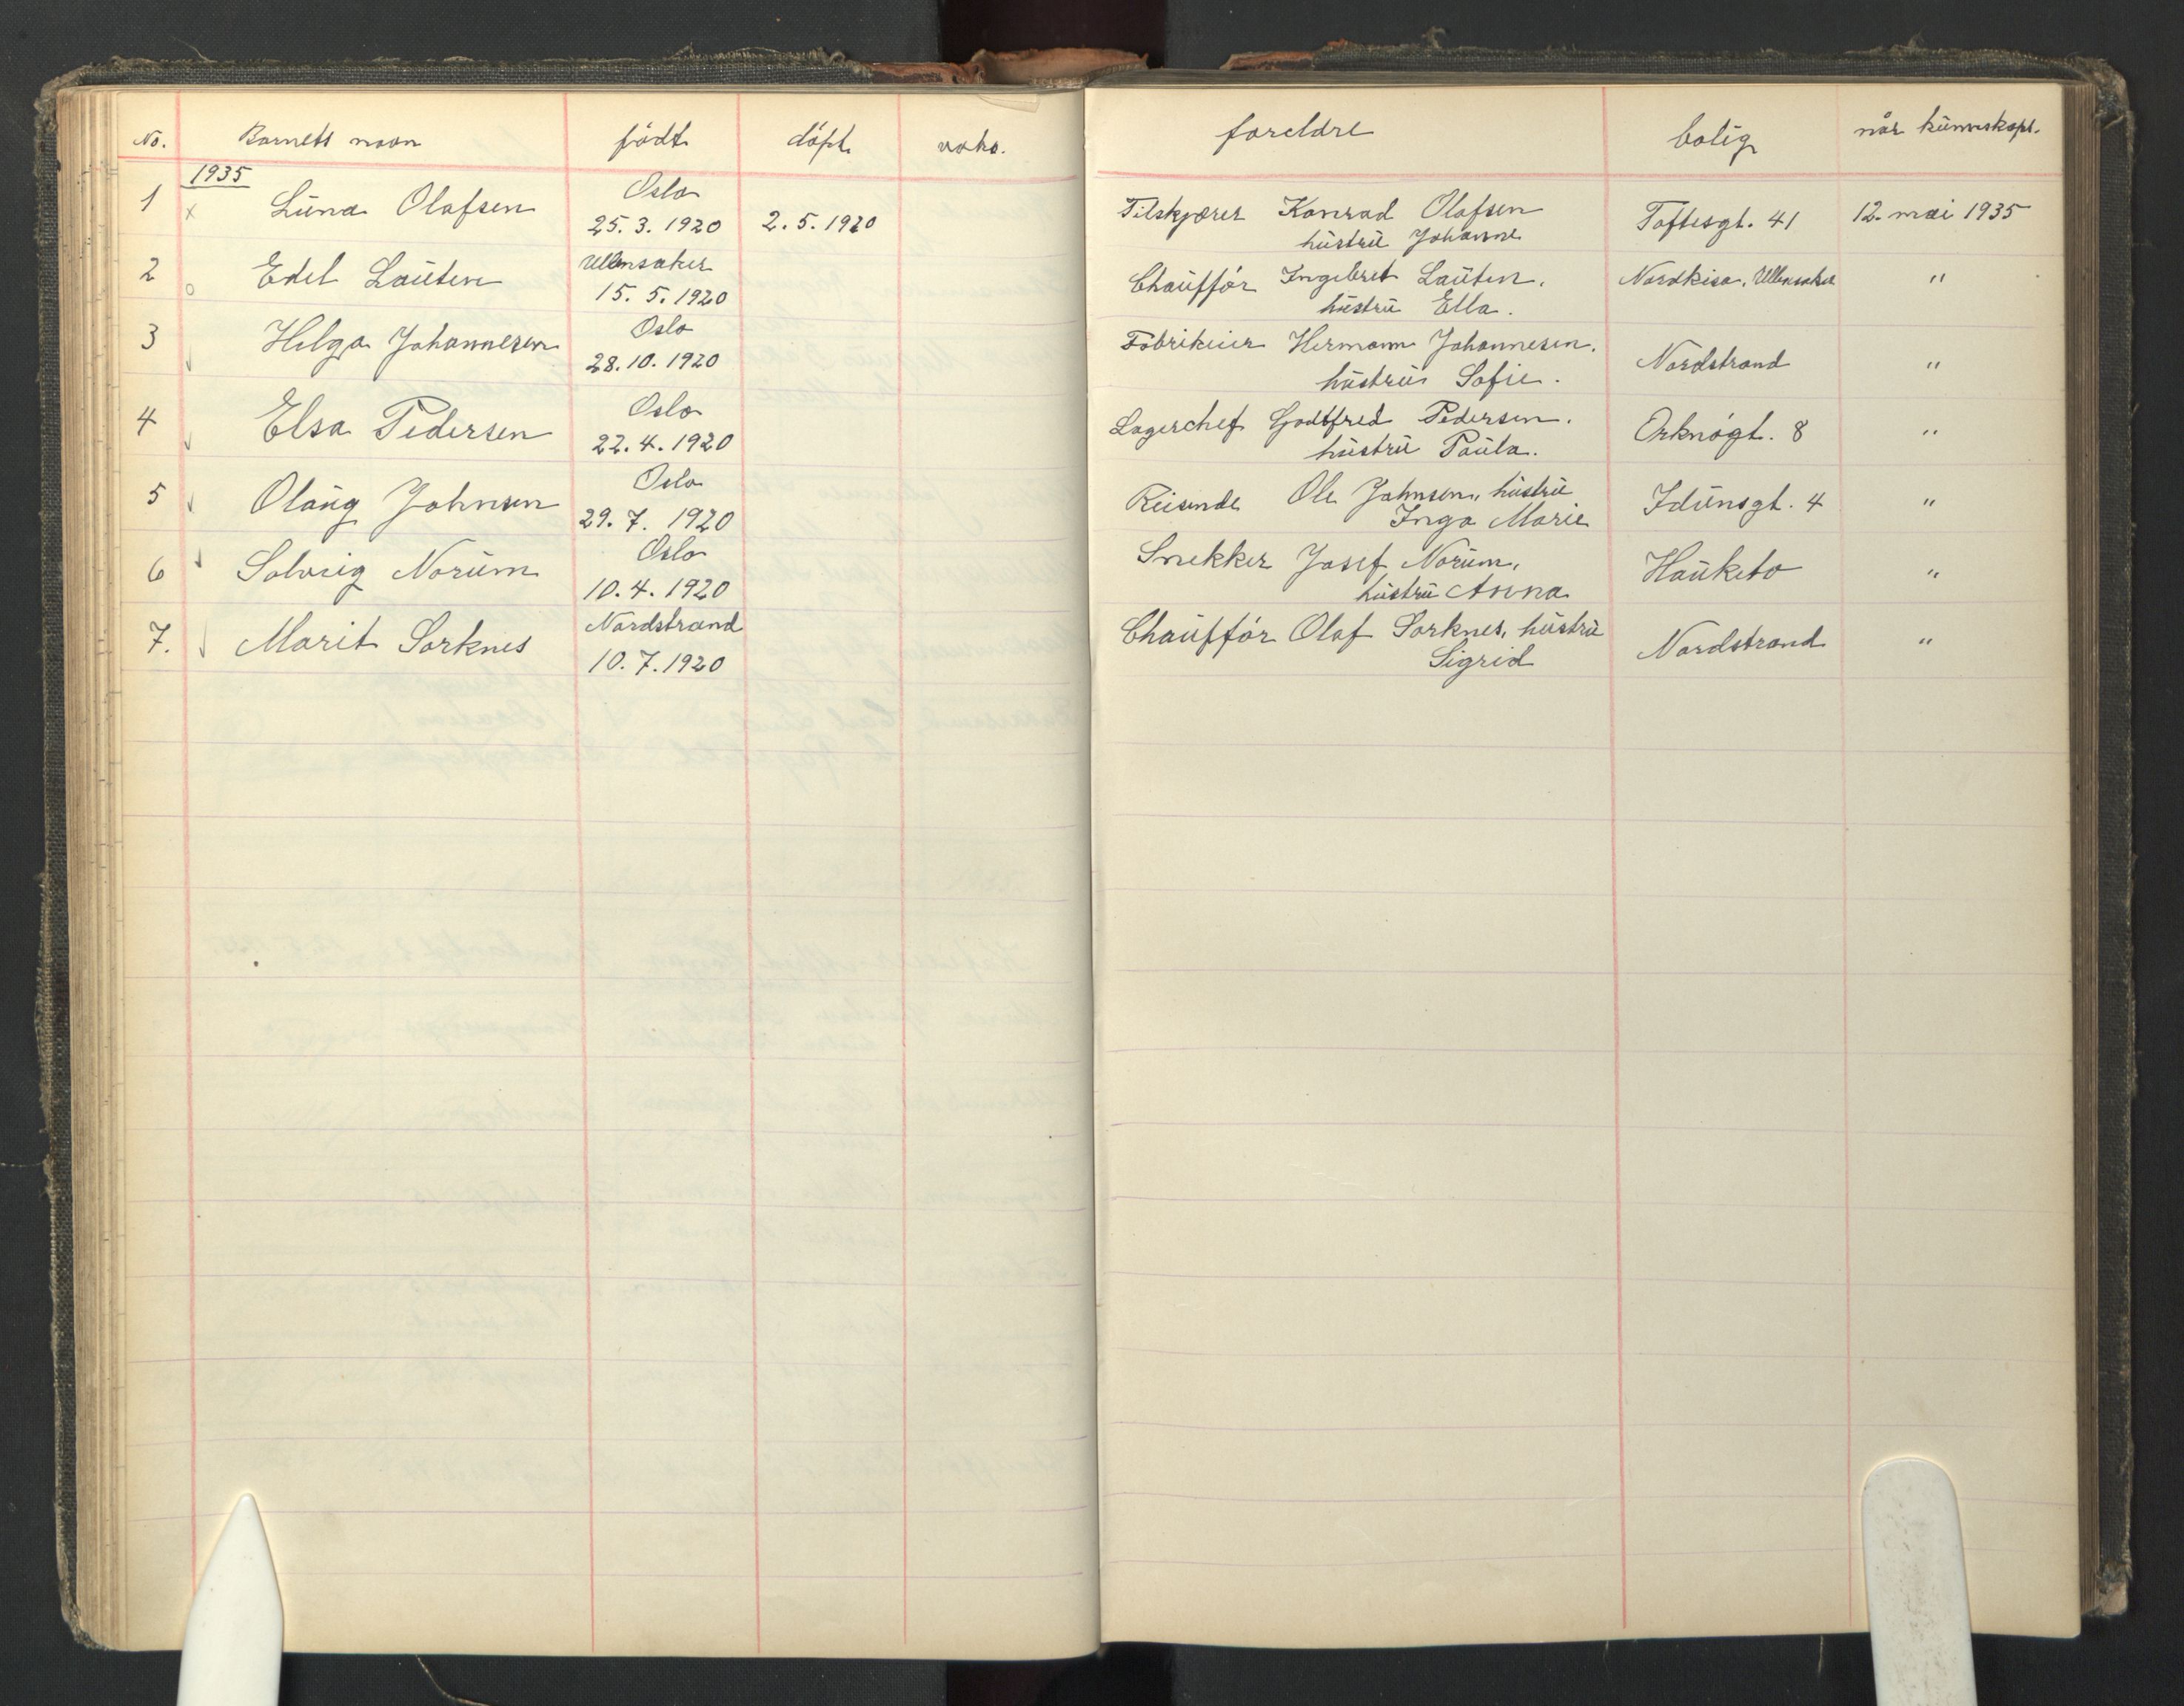 No. Barnets navn født døpt vaks. foreldre bolig når kunnskapt.
1935
1 x Luna Olafsen Oslo 25.3.1920 2.5.1920 Tilskjærer Konrad Olafsen Toftesgt. 41 12. mai 1935
hustru Johanne
2 o Edel Lauten Ullensaker 15.5.1920 Chauffør Ingebret Lauten. Nordkisa, Ullensaker "
hustru Ella.
3 ✓ Helga Johannesen Oslo 28.10.1920 Fabrikeier Hermann Johannesen. Nordstrand "
hustru Sofie.
4 ✓ Elsa Pedersen Oslo 22.4.1920 Lagerchef Godtfred Pedersen. Orknøgt. 8 "
hustru Paula.
5 ✓ Olaug Johnsen Oslo 29.7.1920 Reisende Ole Johnsen, hustru Idunsgt. 4 "
Inga Marie
6 ✓ Solveig Norum Oslo 10.4.1920 Snekker Josef Norum, Hauketo "
hustru Anna
7. ✓ Marit Sorknes Nordstrand 10.7.1920 Chauffør Olaf Sorknes, hustru Nordstrand "
Sigrid